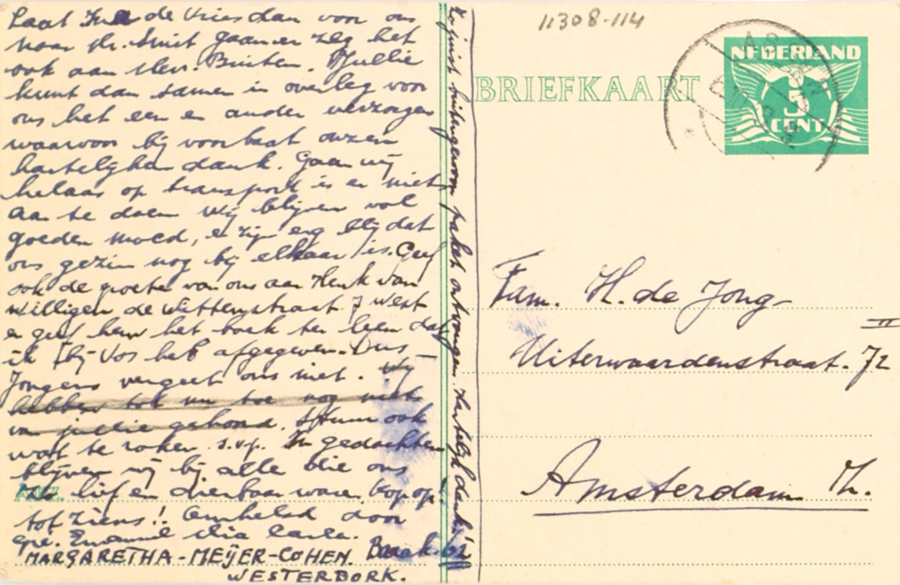 11308-114
Laat Ina de Vries dan voor ons
naar Mr. Smit gaan en zeg het
ook aan Mevr. Binten. Jullie
kunt dan samen in overleg voor
ons het een en ander verzorgen
waarvoor bij voorbaat onzen
hartelijken dank. Gaan wij
helaas op transport is er niets
aan te doen. Wij blijven vol
goeden moed, en zijn erg blij dat
ons gezin nog bij elkaar is. Geef
ook de groeten van ons aan Henk van
Willigen de Wittenstraat 7 West
en geef hem het boek te leen dat
ik bij Vos heb afgegeven. Ons
Jongens vergeet ons niet. Wij
hebben tot nu toe nog niets
van jullie gehoord. Stuur ook
wat te roken s.v.p. In gedachten
blijven wij bij alle die ons
zo lief en dierbaar waren. Kop op
tot ziens!! Omhelsd door
Emanuel
MARGARETHA-MEIJER-COHEN. Barak 62
WESTERBORK.
Zojuist buitengewoon pakket ontvangen. Hartelijk dank!
BRIEFKAART
NEDERLAND
5
CENT
Fam. H. de Jong-
Uiterwaardenstraat. 72 II
Amsterdam Z.